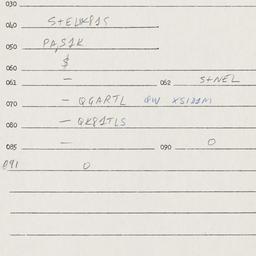 030
040 S+ELUK81S
050 PA,S1K
060 $
061 - 062 S+NEL
070 - QGARTL QW XS131M
080 - QK81TLS
085 - 090 O
091 O